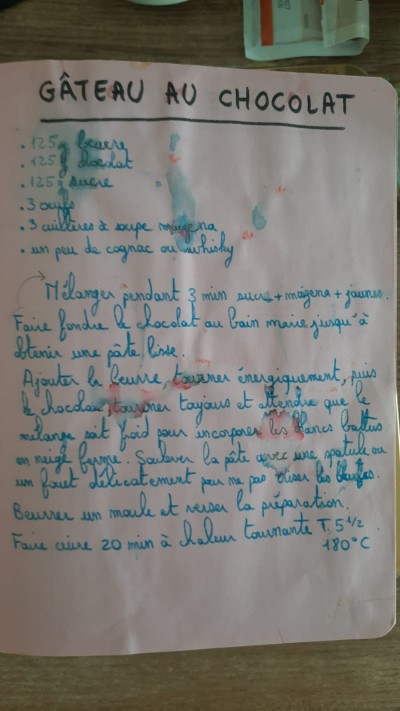 GÂTEAU AU CHOCOLAT
. 125g beurre
. 125g chocolat
. 125g sucre
. 3 oeufs
. 3 cuillères à soupe maïzena
. un peu de cognac ou whisky
Mélanger pendant 3 min sucre + maïzena + jaunes.
Faire fondre le chocolat au bain marie jusqu'à
obtenir une pâte lisse.
Ajouter le beurre, tourner énergiquement, puis
le chocolat, tourner toujours et attendre que le
mélange soit froid pour incorporer les blancs battus
en neige ferme. Soulever la pâte avec une spatule ou
un fouet délicatement pour ne pas briser les
Beurrer un moule et verser la préparation.
Faire cuire 20 min à chaleur tournante T. 5 1/2
180°C